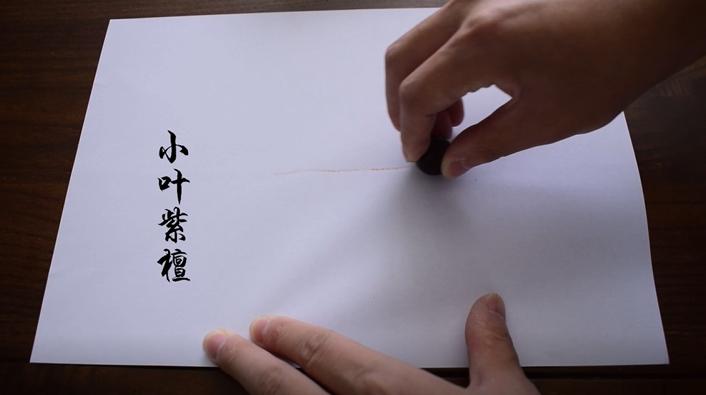 小叶紫檀